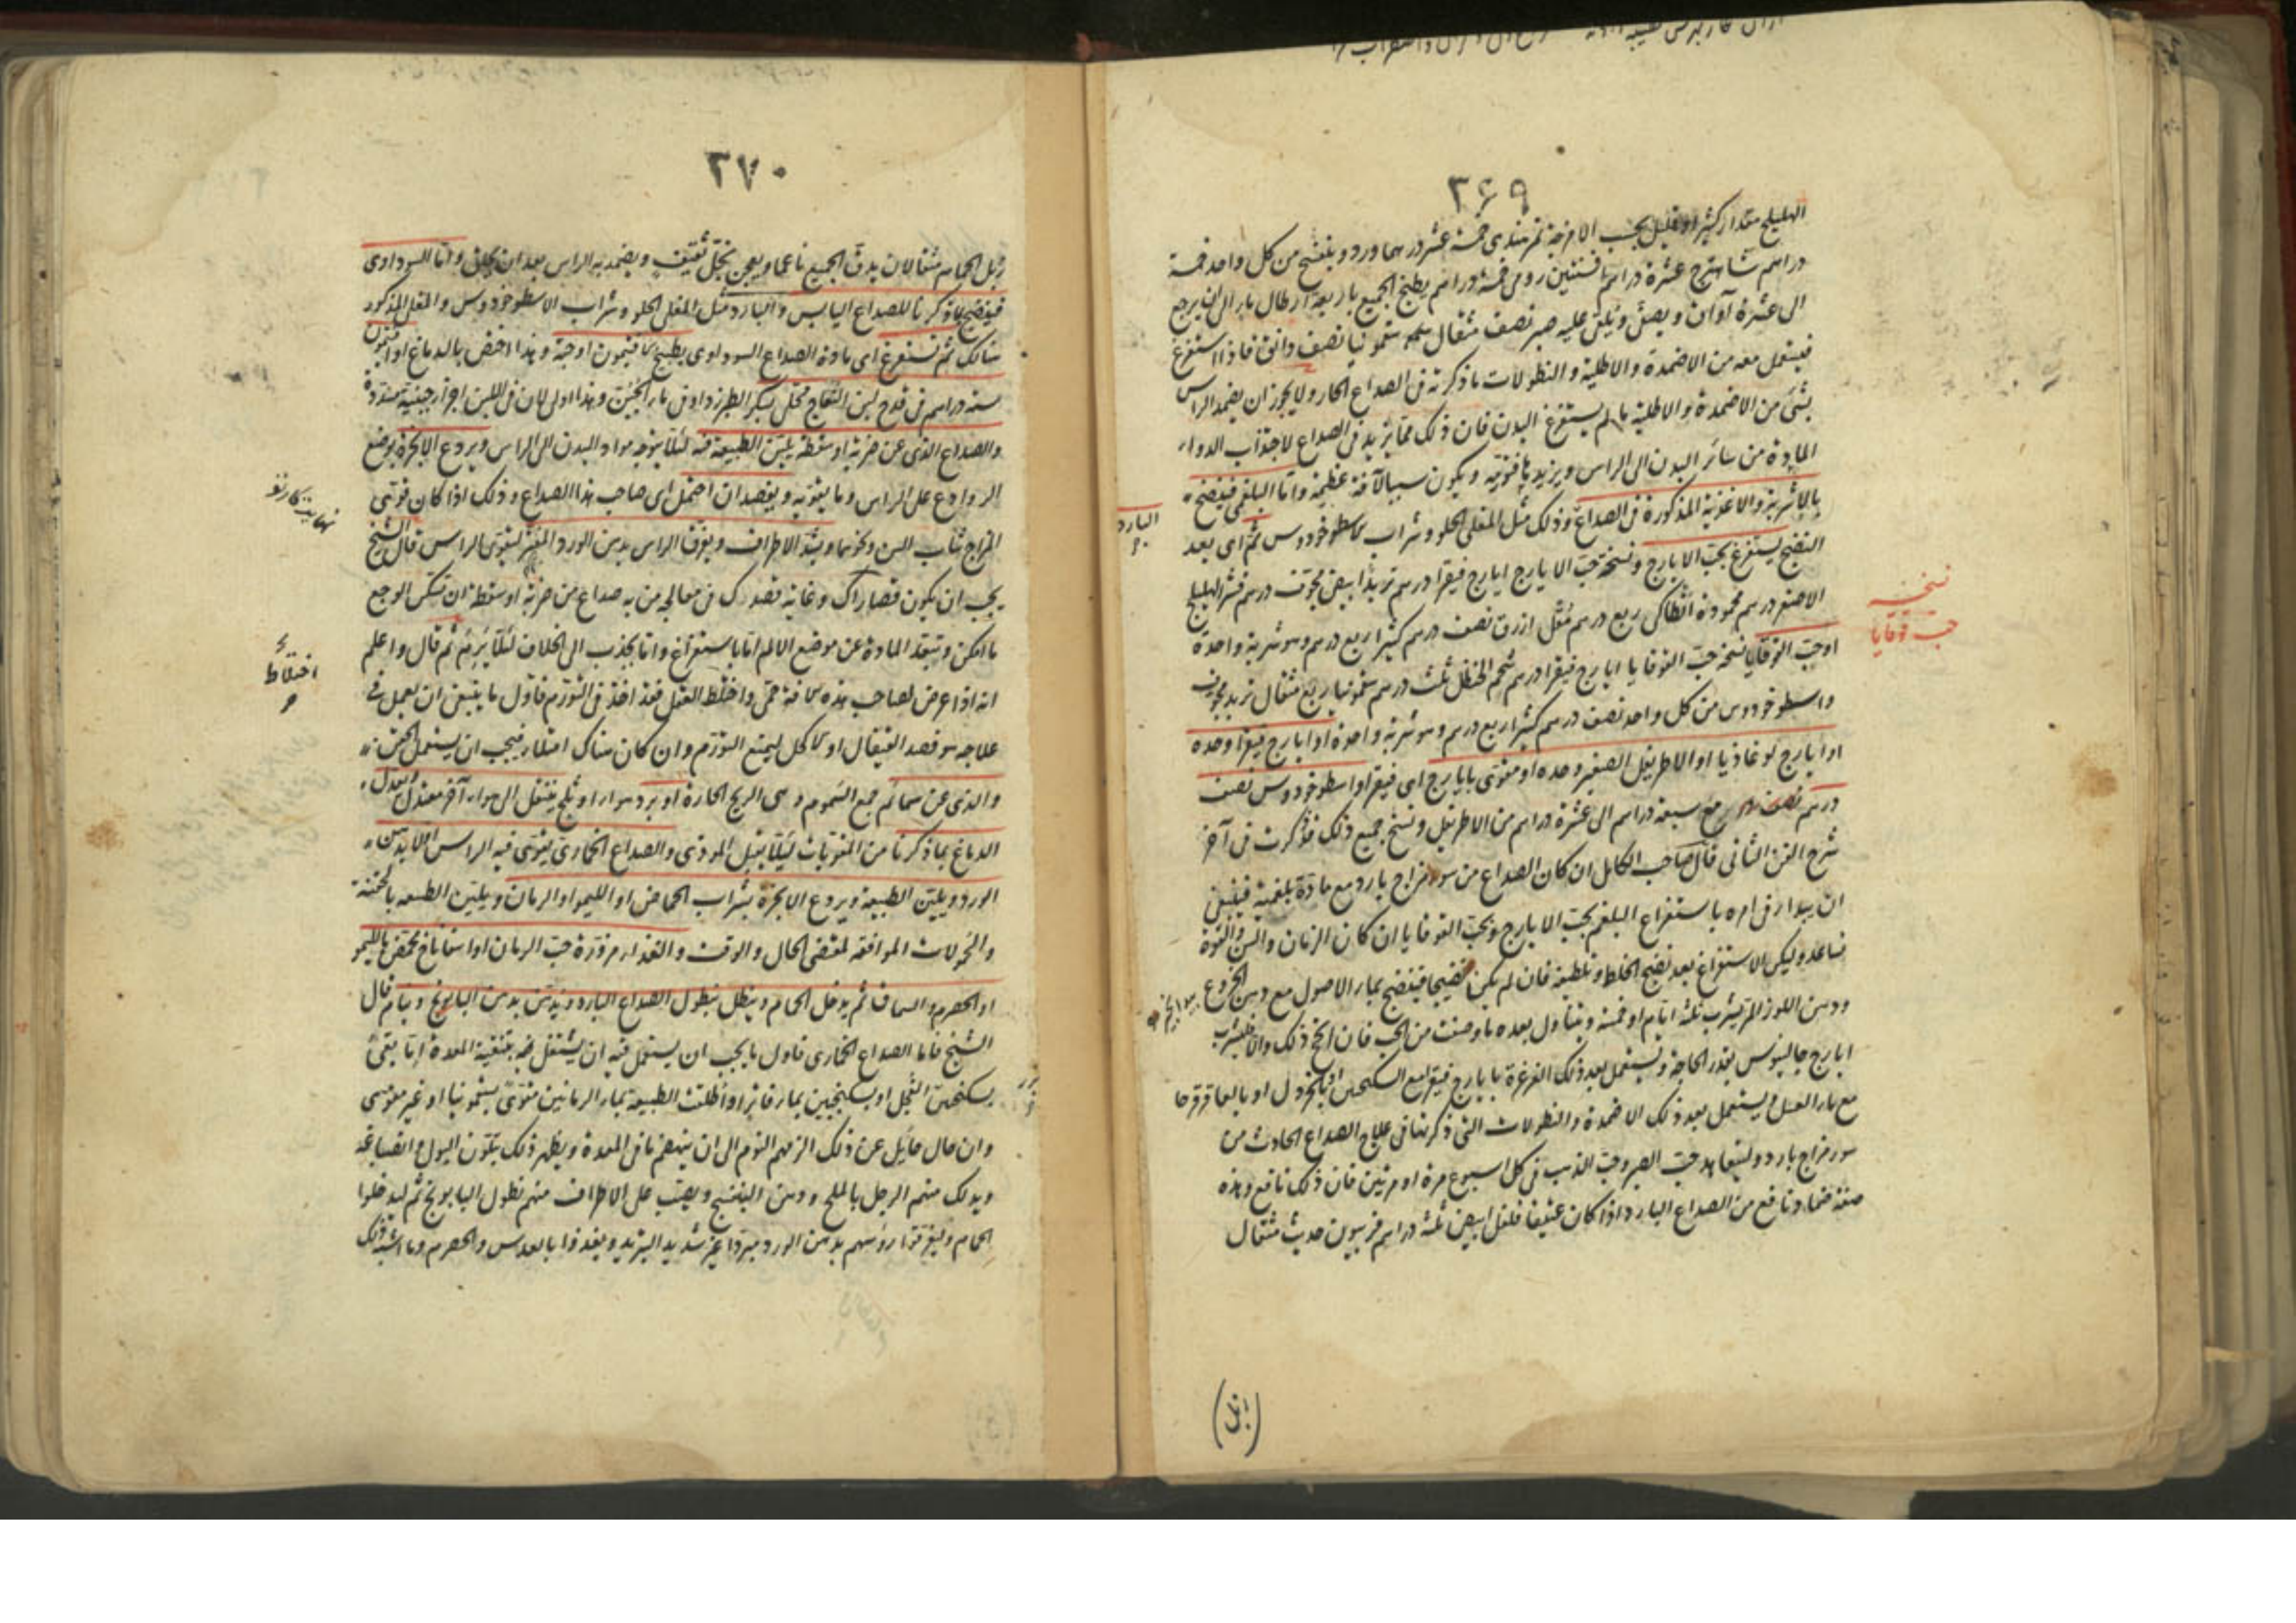 ٢۶٩
الهليلج مقدار كثير او قليل بحسب الامزجة تمر هندى خمسة عشر درهما ورد و بنفسج من كل واحد خمسة
دراهم شاهترج عشرة دراهم افسنتين رومى خمسة دراهم يطبخ الجميع باربعة ارطال ماء الى ان يرجع
الى عشرة آواق و يصفى و يلقى عليه صبر نصف مثقال سقمونيا نصف دانق فاذا استفرغ
فيستعمل معه من الاضمدة والاطلية و النطولات ما ذكرته فى الصداع الحار ولا يجوز ان يضمد الراس
بشئ من الاضمدة والاطلية ما لم يستفرغ البدن فان ذلك مما يزيد فى الصداع لاجتذاب الدواء
المادة من سائر البدن الى الراس ويزيد ويكون سببا لآفة عظيمة واما البلغمى فينضج
بالاشربة والاغذية المذكورة فى الصداع البارد وذلك مثل المغلى الحلو و شراب الاسطوخودوس ثم اى بعد
النضج يستفرغ بحب الايارج و نسخة حب الايارج ايارج فيقرا درهم تربد ابيض مجوف درهم قشر الهليلج
الاصفر درهم محمودة انطاكى ربع درهم مقل ازرق نصف درهم كثيرا ربع درهم وهو شربة واحدة
نسخة
حب قوقايا
او حب القوقايا نسخة حب القوقايا ايارج فيقرا درهم شحم الحنظل ثلث درهم سقمونيا ربع مثقال تربد مجوف
واسطوخودوس من كل واحد نصف درهم كثيرا ربع درهم وهو شربة واحدة او ايارج فيقرا وحده
او ايارج لوغاذيا او الاطريفل الصغير وحده او مقوى بايارج اى فيقرا واسطوخودوس نصف
درهم نصف درهم مع سبعة دراهم الى عشرة دراهم من الاطريفل و نسخ جميع ذلك قد ذكرت فى آخر
شرح الفن الثانى قال صاحب الكامل ان كان الصداع من سوء مزاج بارد مع مادة بلغمية فينبغى
ان يبدا فى امره باستفراغ البلغم بحب الايارج و بحب القوقايا ان كان الزمان والسن والقوة
تساعد وليكن الاستفراغ بعد نضج الخلط و تلطيفه فان لم يكن نضيجا فينضج بماء الاصول مع دهن الخروع
ودهن اللوز المر يشرب ثلثة ايام او خمسة و يتناول بعده ما وصفت من الحب فان انجح ذلك والا فليشرب
ايارج جالينوس بقدر الحاجة و يستعمل بعد ذلك الغرغرة بايارج فيقرا مع السكنجبين او بالخردل او بالعاقرقرحا
مع ماء العسل و يستعمل بعد ذلك الاضمدة والنطولات التى ذكرناها فى علاج الصداع الحادث من
سوء مزاج بارد وليتعاهد حب الصبر وحب الذهب فى كل اسبوع مرة او مرتين فان ذلك نافع وهذه
صفة ضماد نافع من الصداع البارد اذا كان عتيقا فلفل ابيض ثلثة دراهم فربيون حديث مثقال
٢٧٠
زبل الحمام مثقالان يدق الجميع ناعما ويعجن بخل ثقيف ويضمد به الراس بعد ان يحلق واما السوداوى
فينضج بما ذكرنا للصداع اليابس والبارد مثل المغلى الحلو و شراب الاسطوخودوس والمغلى المذكور
هناك ثم تستفرغ اى مادة الصداع السوداوى بطبيخ الافتيمون او حبه وهذا اخص بالدماغ او افتيمون
ستة دراهم فى قدح لبن اللقاح محلى بسكر الطبرزد او فى ماء الجبن وهذا اولى لان فى اللبن اجزاء جبنية مسددة
والصداع الذى عن ضربة او سقطة يلين الطبيعة فيه لئلا يتوجه مواد البدن الى الراس ويردع الابخرة بوضع
الروادع على الراس وما يقويه و يفصد ان احتمل اى صاحب هذا الصداع وذلك اذا كان قوى
المزاج شاب السن ونحوهما ويشد الاطراف ويعرق الراس بدهن الورد المفتر ليقوى الراس قال الشيخ
يجب ان يكون قصاراك وغاية قصدك فى معالجة من به صداع من ضربة او سقطة ان تسكن الوجع
ما امكن وتبعد المادة عن موضع الالم اما باستفراغ واما بجذب الى الخلاف لئلا يرم ثم قال واعلم
اختلاط
انه اذا عرض لصاحب هذه الآفة حمى واختلط العقل فقد اخذ فى التورم فاول ما ينبغى ان يعمل فى
علاجه هو فصد القيفال او الاكحل ليمنع التورم وان كان هناك امتلاء فيجب ان يستعمل الحقن
والذى عن سمائم جمع السموم وهى الريح الحارة او برد هواء او ثلج ينتقل الى هواء آخر معتدل يعدل
الدماغ بما ذكرنا من المقويات لئلا يقبل الموذى والصداع الخمارى يقوى فيه الراس اولا بدهن
الورد و يلين الطبيعة و يردع الابخرة بشراب الحماض او الليمو او الرمان و يلين الطبيعة بالحقنة
والحمولات الموافقة لمقتضى الحال والوقت والغذاء مزورة حب الرمان او اسفاناخ محمض بالليمو
او الحصرم والسماق ثم يدخل الحمام و ينطل بنطول الصداع البارد و يدهن بدهن البابونج و ينام قال
الشيخ فاما الصداع الخمارى فاول ما يجب ان يستعمل فيه ان يشتغل فيه بتنقية المعدة اما بقئ
بسكنجبين الفجل او بسكنجبين بماء فاتر او اطلقت الطبيعة بماء الرمانين مقوى بسقمونيا او غير مقوى
وان حال حائل عن ذلك الزمهم النوم الى ان ينهضم ما فى المعدة و يظهر ذلك بتلون البول و انصباغه
ويدلك منهم الرجل بالملح و دهن البنفسج و يصب على الاطراف منهم نطول البابونج ثم ليدخلوا
الحمام و ليغرقوا رؤسهم بدهن الورد مبردا غير شديد التبريد و يغذوا بالعدس والحصرم وما اشبه ذلك